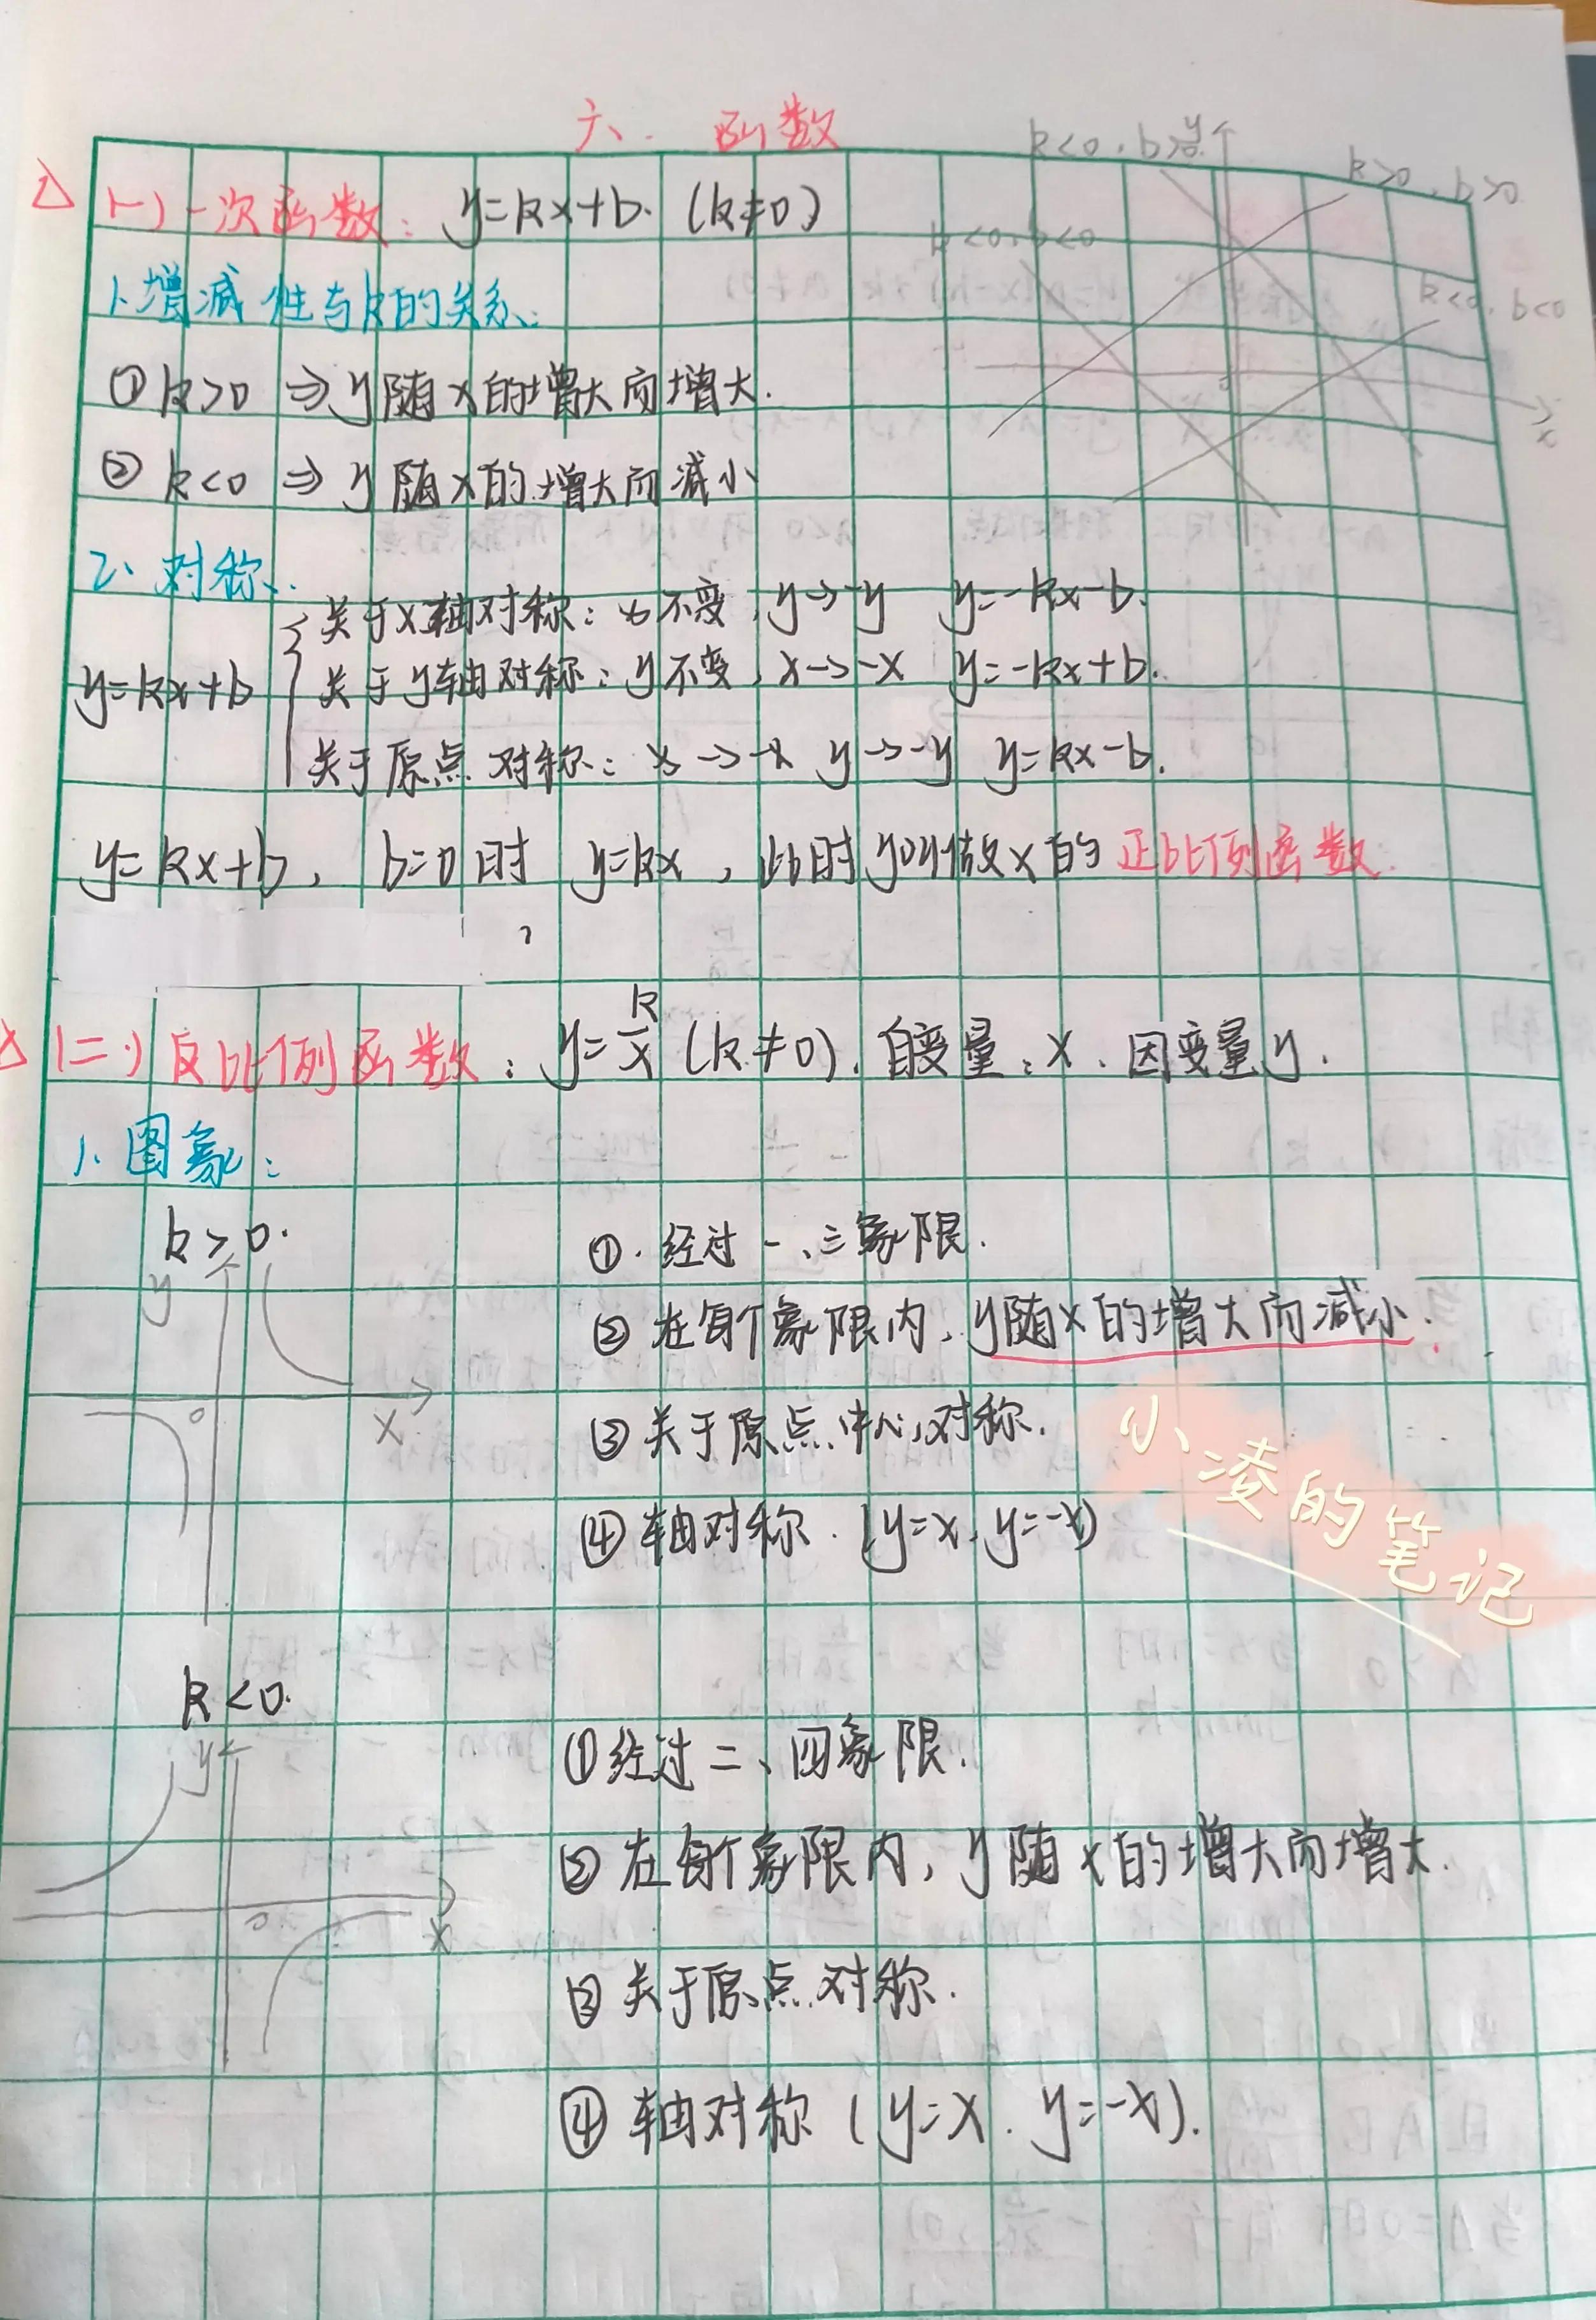 六、函数
(一)一次函数: y=kx+b. (k≠0)
k<0,b>0.
y
k>0,b>0
k<0,b<0
k<0,b<0
o
x
1、增减性与k的关系:
①k>0 ⇒ y随x的增大而增大.
②k<0 ⇒ y随x的增大而减小
2、对称:
y=kx+b
关于x轴对称: x不变, y→-y y=-kx-b.
关于y轴对称: y不变, x→-x y=-kx+b.
关于原点对称: x→-x y→-y y=kx-b.
y=kx+b, b=0时 y=kx, 此时y叫做x的正比例函数.
(二)反比例函数: y=k/x (k≠0). 自变量:x、因变量y.
1、图象:
k>0.
y
o
x
①. 经过一、三象限.
②在每个象限内, y随x的增大而减小.
③关于原点中心对称.
④轴对称. (y=x, y=-x)
小凌的笔记
k<0.
y
o
x
①经过二、四象限.
②在每个象限内, y随x的增大而增大.
③关于原点对称.
④轴对称 (y=x. y=-x).